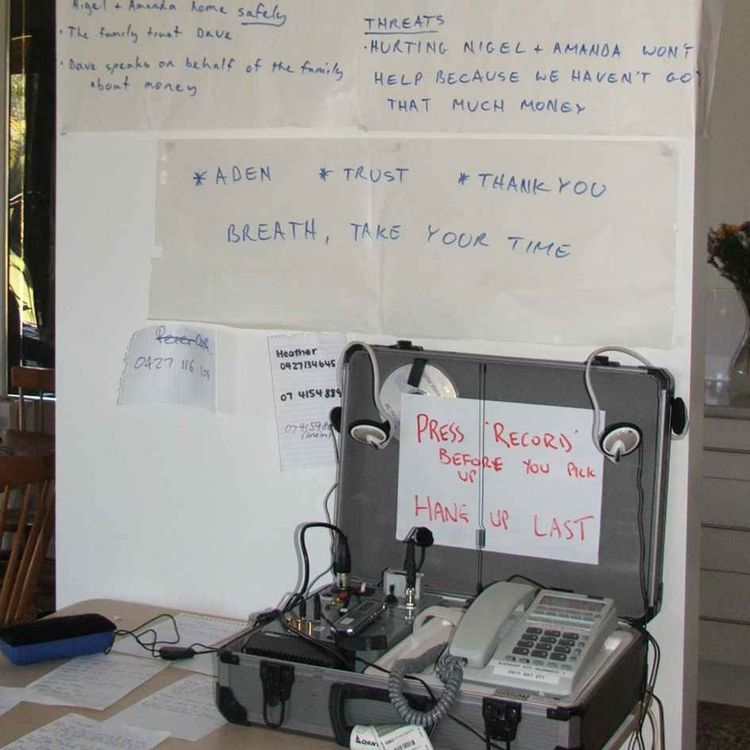 Nigel + Amanda home safely
• The family trust Dave
• Dave speaks on behalf of the family
about money
THREATS
• HURTING NIGEL + AMANDA WON'T
HELP BECAUSE WE HAVEN'T GO
THAT MUCH MONEY
* ADEN * TRUST * THANK YOU
BREATH, TAKE YOUR TIME
0427 116
Heather
0427134645
07 4154 889
PRESS 'RECORD'
BEFORE YOU PICK
UP
HANG UP LAST